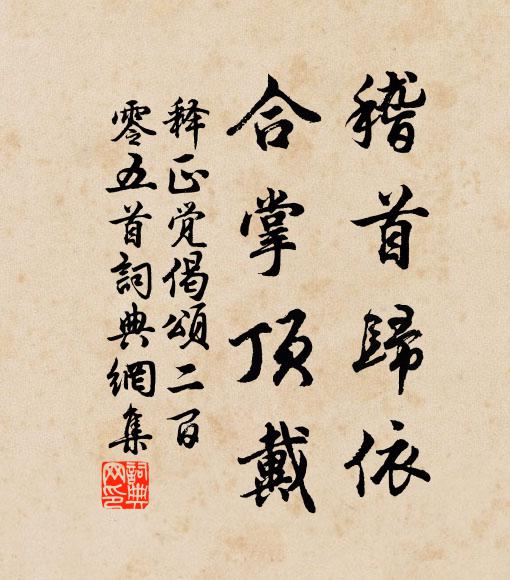 稽首歸依
合掌頂戴
释正覚偈頌二百
零五首詞典網集
詞典网印